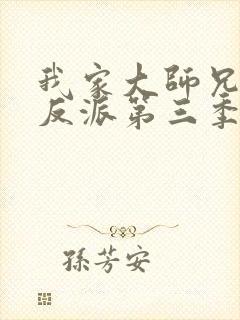 我家大師兄
反派第三季
孫芳安